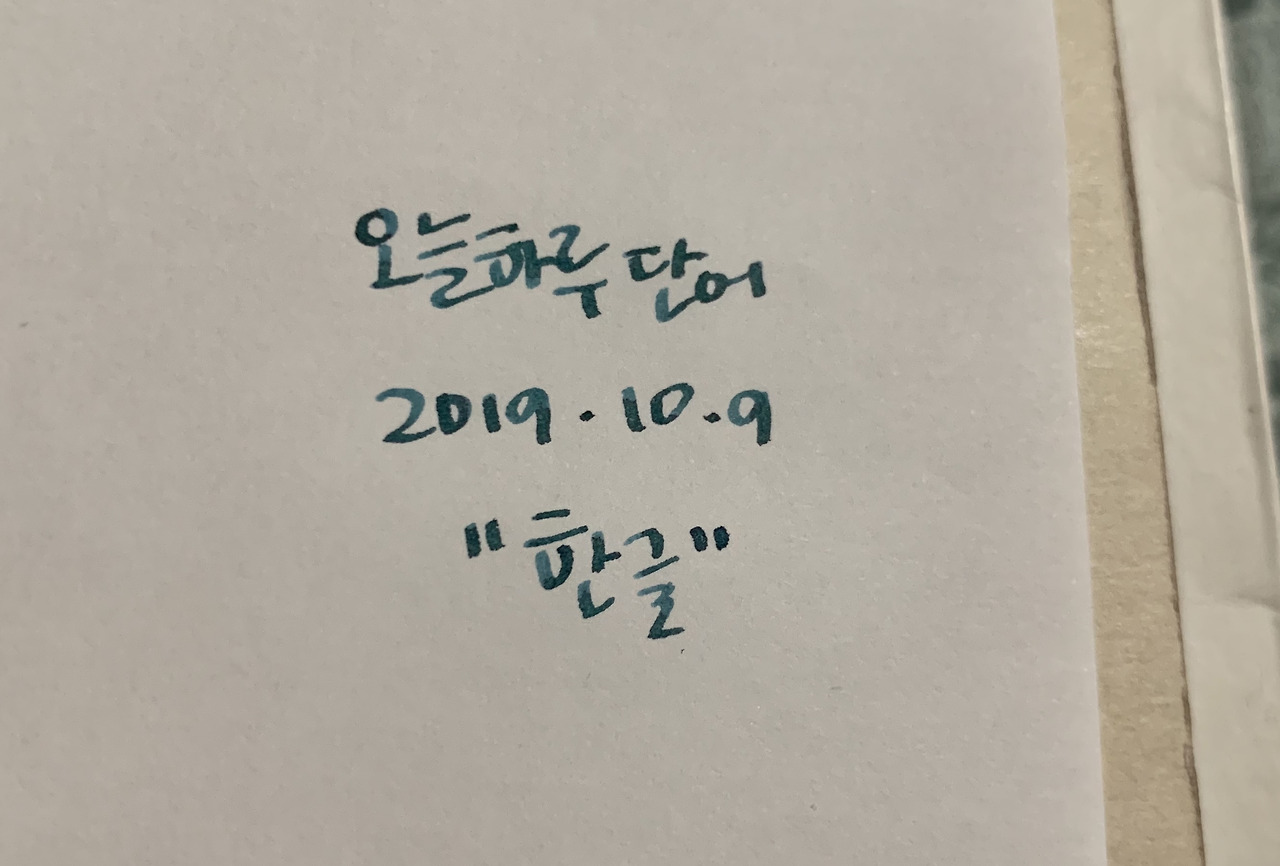 오늘하루 단어
2019.10.9
"한글"